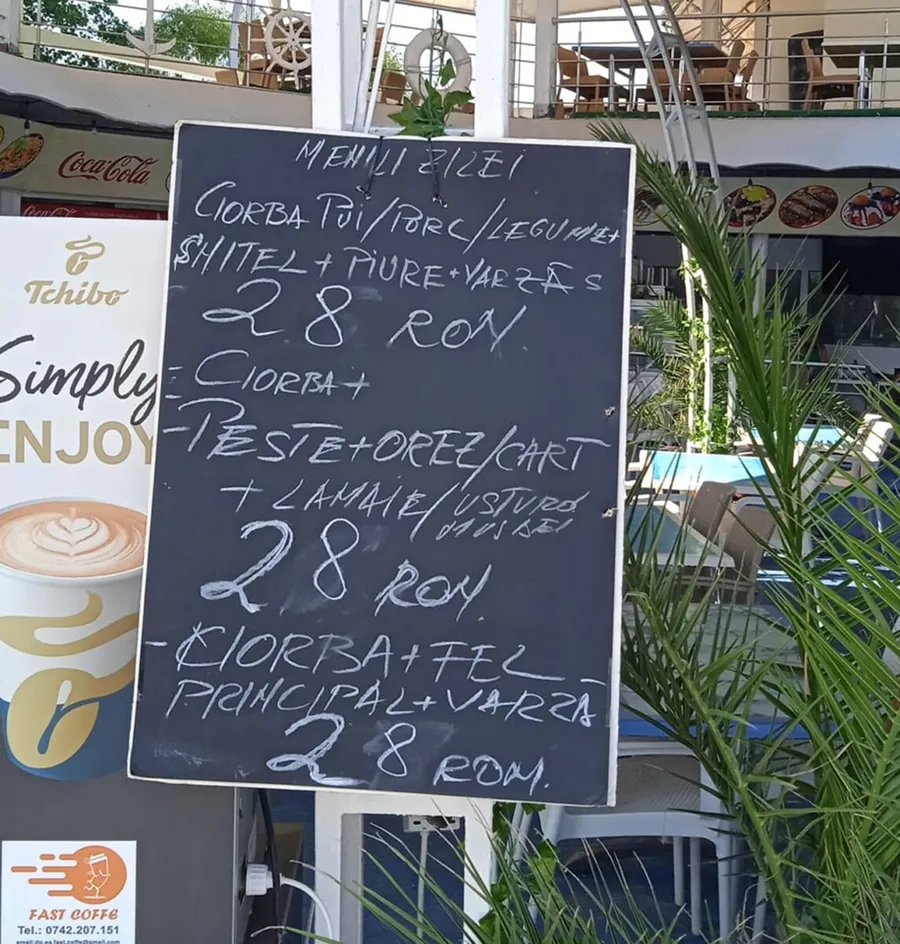 Coca-Cola
MENIU ZILEI
CIORBA PUI/PORC/LEGUME+
SHITEL+PIURE+VARZĂ S
28 RON
- CIORBA+
- PESTE+OREZ/CART
+ LAMAIE/USTURO
MUSDEI
28 RON.
- CIORBA+FEL
PRINCIPAL+VARZĂ
28 RON.
Tchibo
Simply
ENJOY
FAST COFFE
Tel.: 0742.207.151
email:do.es.fast.coffe@gmail.com